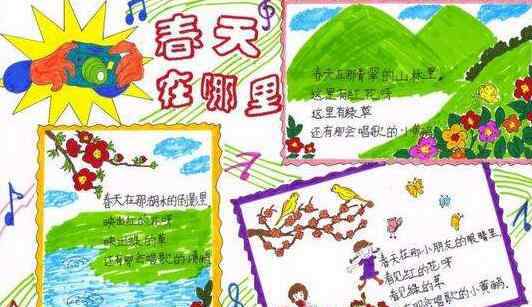 春天
在哪里
春天在那青翠的山林里
这里有红花呀
这里有绿草
还有那会唱歌的小黄鹂
春天在那湖水的倒影里
映出红的花呀
映出绿的草
还有那会唱歌的小黄鹂
春天在那小朋友的眼睛里
看见红的花呀
看见绿的草
还有那会唱歌的小黄鹂